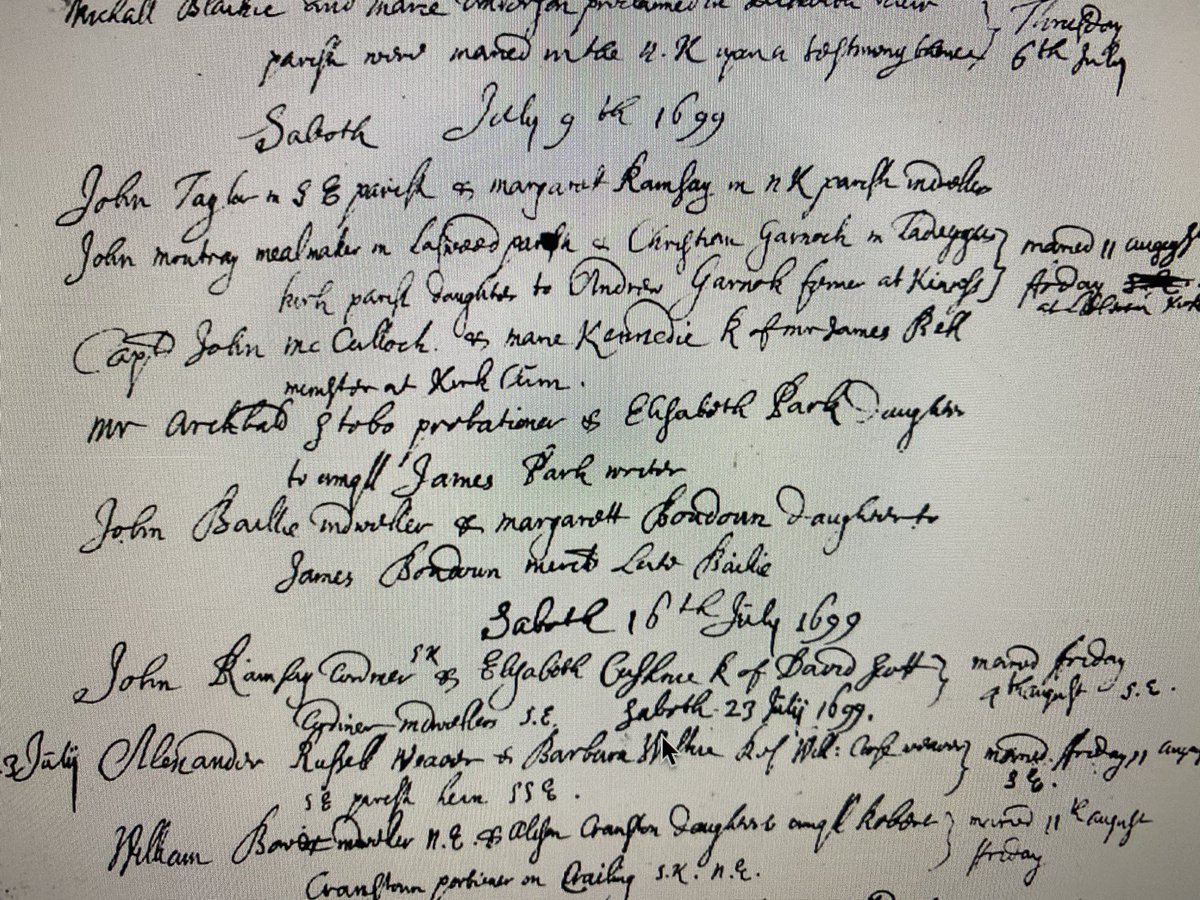 Michall Blackie and Marie Anderson proclaimed in
parish were maried in the n. K upon a testimony thence } Thursday 6th July
Saboth July 9 th 1699
John Taylor in S E parish & margarit Ramsay in n K parish indweller
John montray mealmaker in Lasweed parish & Christian Garnock in } maried 11 august
kirk parish daughter to Andrew Garnok fermer at Kinross } friday
at Kirk
Capt John mc Culloch & marie Kennedie R of mr James Bell
minister at Kirk Cum.
mr Archbald Stobo probationer & Elisabeth Park Daughter
to umqll James Park writer
John Baillie indweller & margarett Boudoun daughter to
James Boudoun mercht Late Bailie
Saboth 16th July 1699
John Ramsay Cordner S K & Elisabeth Cushnie R of David Scott } maried friday
Cordiner indwellers S.E. 4th august S.E.
Saboth 23 Julij 1699.
3 Julij Alexander Russell Weaver & Barbara Wilkie R of Will: weaver } maried friday 11 aug
S E parish hern S S E. S E.
William indweller n.E. & Alison Cranston daughter to umqll Robert } maried 11th august
Cranstoun portioner on Crailing S.K. n.E. friday